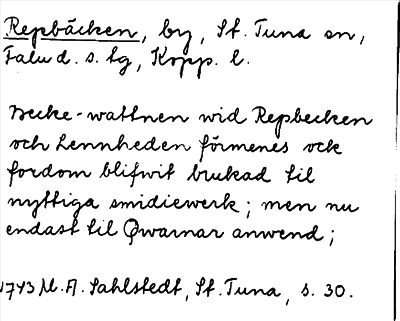 Repbäcken, by, St. Tuna sn,
Falu d. s. lg, Kopp. l.
Becke-wattnen wid Repbecken
och Lennheden förmenes ock
fordom blifwit brukad til
nyttiga smidiewerk; men nu
endast til Qwarnar anwend;
1743 M. A. Sahlstedt, St. Tuna, s. 30.